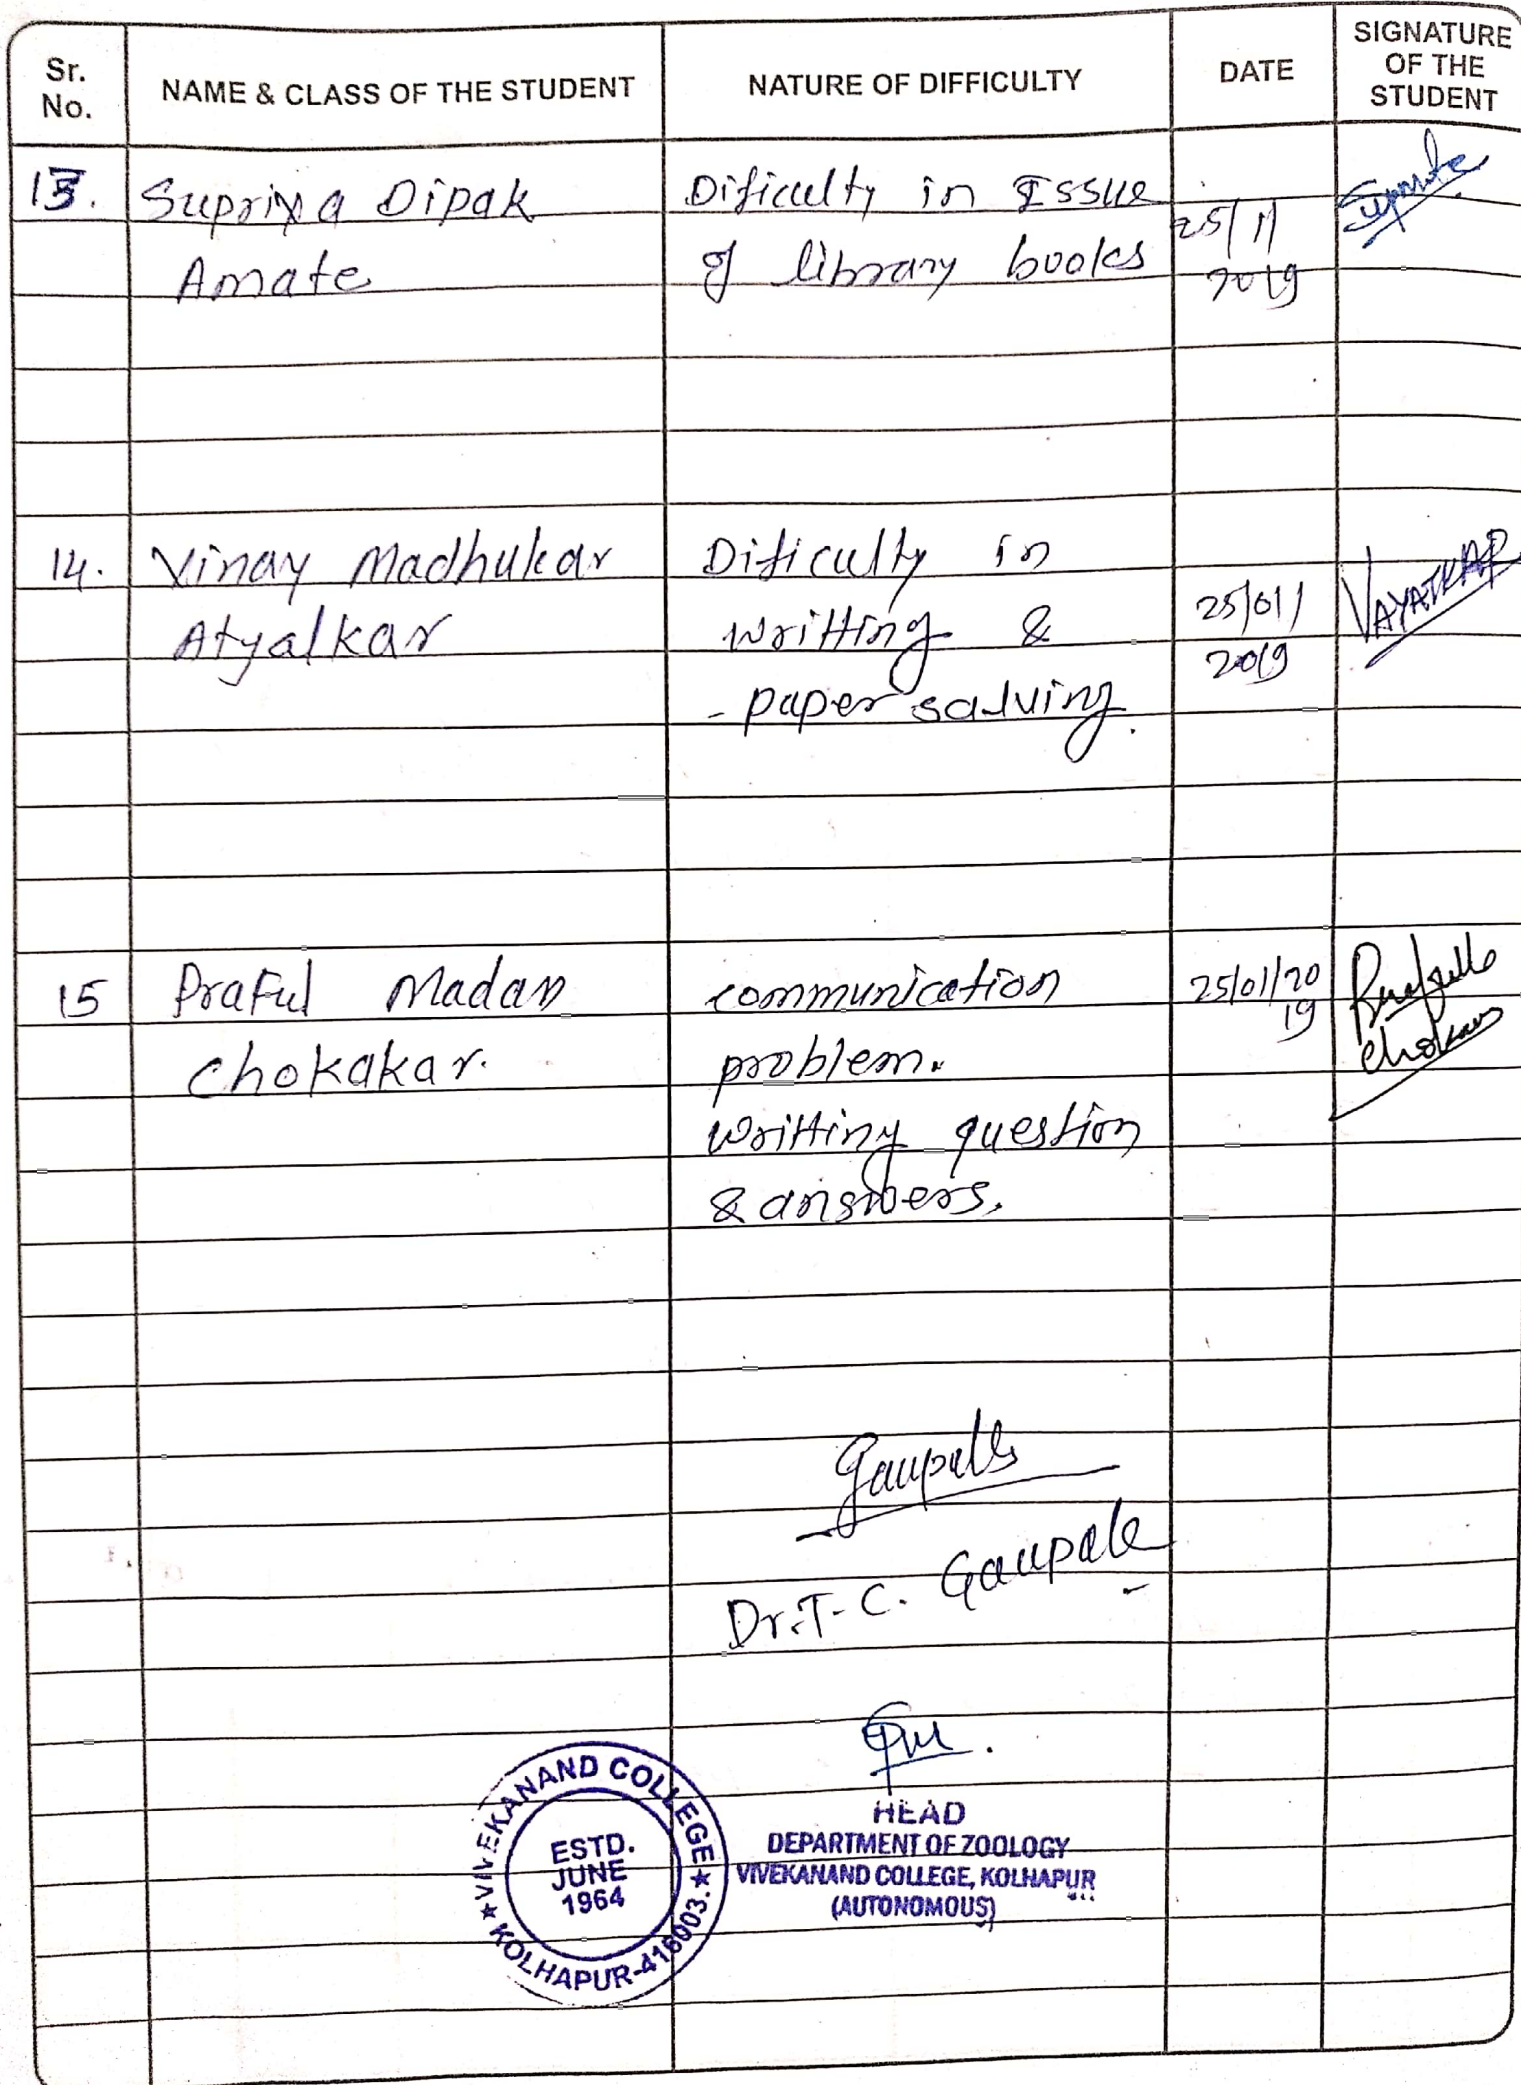 Sr. No.
NAME & CLASS OF THE STUDENT
NATURE OF DIFFICULTY
DATE
SIGNATURE OF THE STUDENT
13. Supriya Dipak
Amate
Dificulty in Issue
of library books
25/1/
2019
14. Vinay Madhukar
Atyalkar
Dificulty in
writting &
- paper salving.
25/01/
2019
VAYATKAR
15 Praful Madan
chokakar.
communication
problem.
writting question
& answers.
25/01/20
19
Dr. T. C. Gaupale
HEAD
DEPARTMENT OF ZOOLOGY
VIVEKANAND COLLEGE, KOLHAPUR
(AUTONOMOUS)
★ VIVEKANAND COLLEGE ★
KOLHAPUR-416003.
ESTD.
JUNE
1964